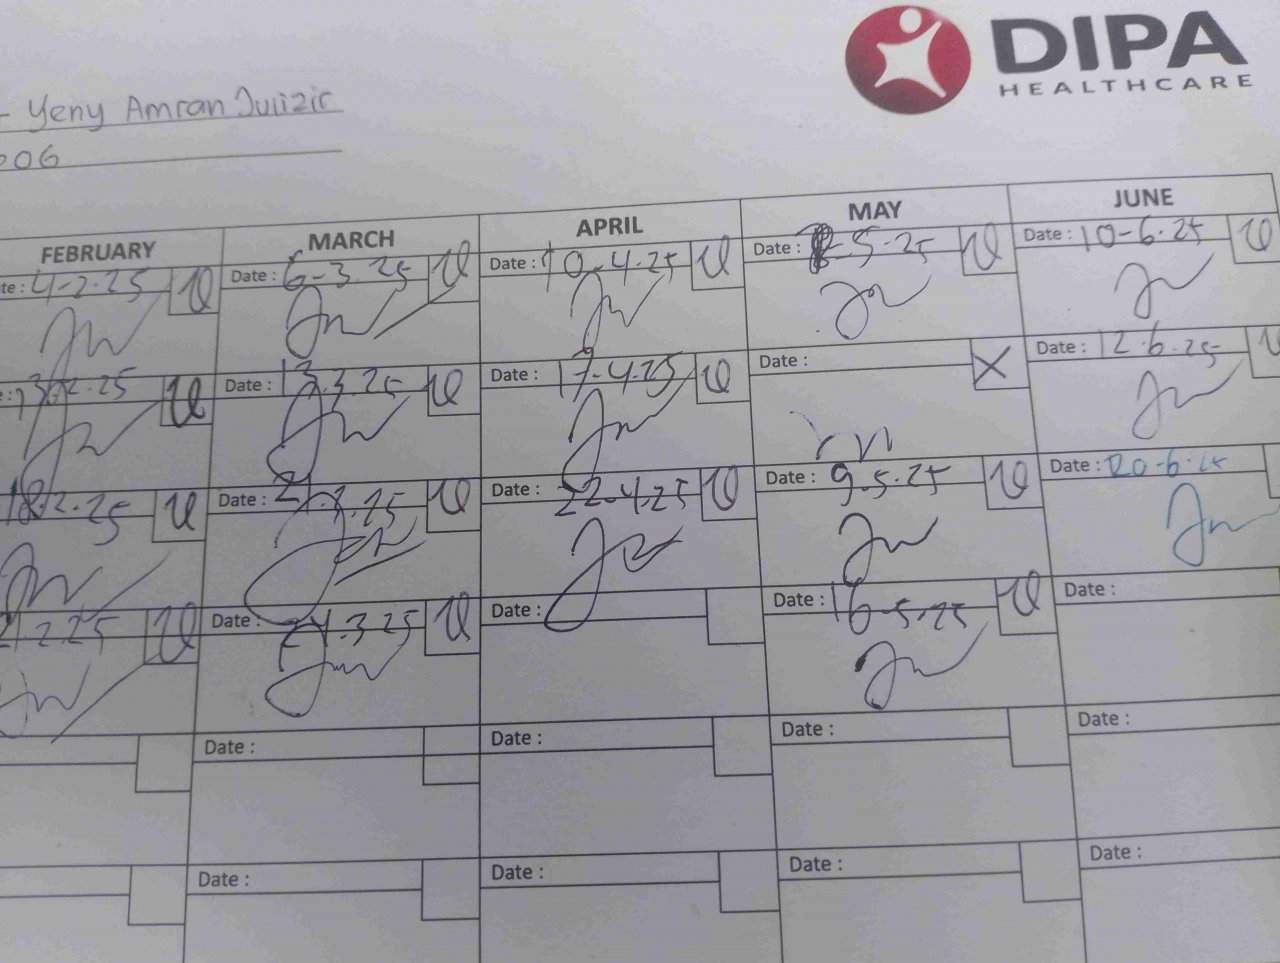 DIPA
HEALTHCARE
- Yeny Amran
006
FEBRUARY MARCH APRIL MAY JUNE
te: 4-2-25 Date: 6-3.25 Date: 10-4-25 Date: -5-25 Date: 10-6-25
13-2-25 Date: 13.3.25 Date: 17-4-25 Date: Date: 12.6.25
18-2-25 Date: 21.3.25 Date: 22-4-25 Date: 9.5.25 Date: 20-6-25
21.2.25 Date: .3.25 Date: Date: 16-5-25 Date:
Date: Date: Date: Date:
Date: Date: Date: Date: